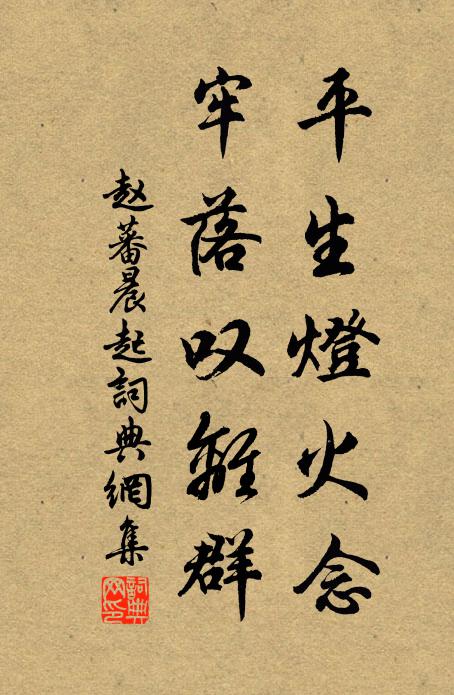 平生燈火念
牢落叹離群
赵蕃晨起詞典網集
詞典网印